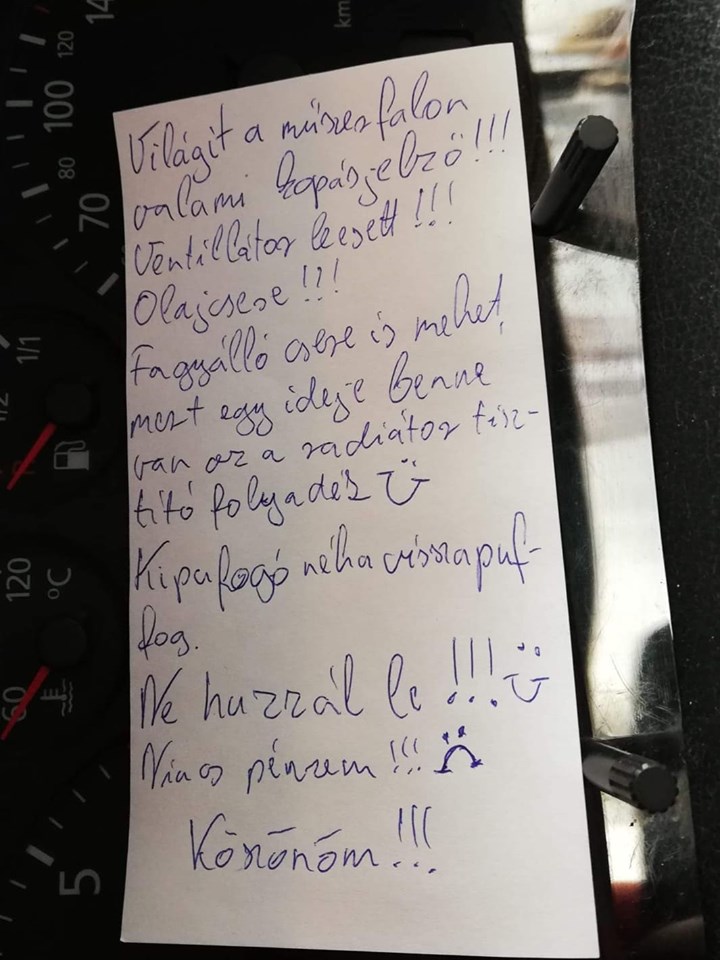 Világít a műszerfalon
valami kopásjelző!!!
Ventillátor leesett!!!
Olajcsere!!!
Fagyálló csere is mehet
mert egy ideje benne
van az a radiátor tisz-
tító folyadék
Kipufogó néha visszapuf-
fog.
Ne húzzál le!!!
Nincs pénzem!!!
Köszönöm!!!
km
14
120
100
80
70
1/1
1/2
120
°C
60
5